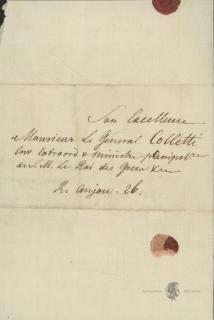 Son Excellence
Monsieur Le Général Colletti
Env Extraord & Ministre plénipot.re
de S. M. Le Roi des Grecs &
Anjou. 26.